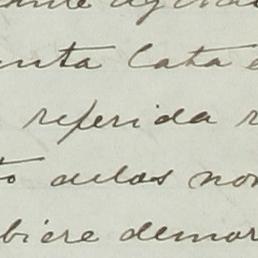 enta Cata
referida
to delas non
biere demor